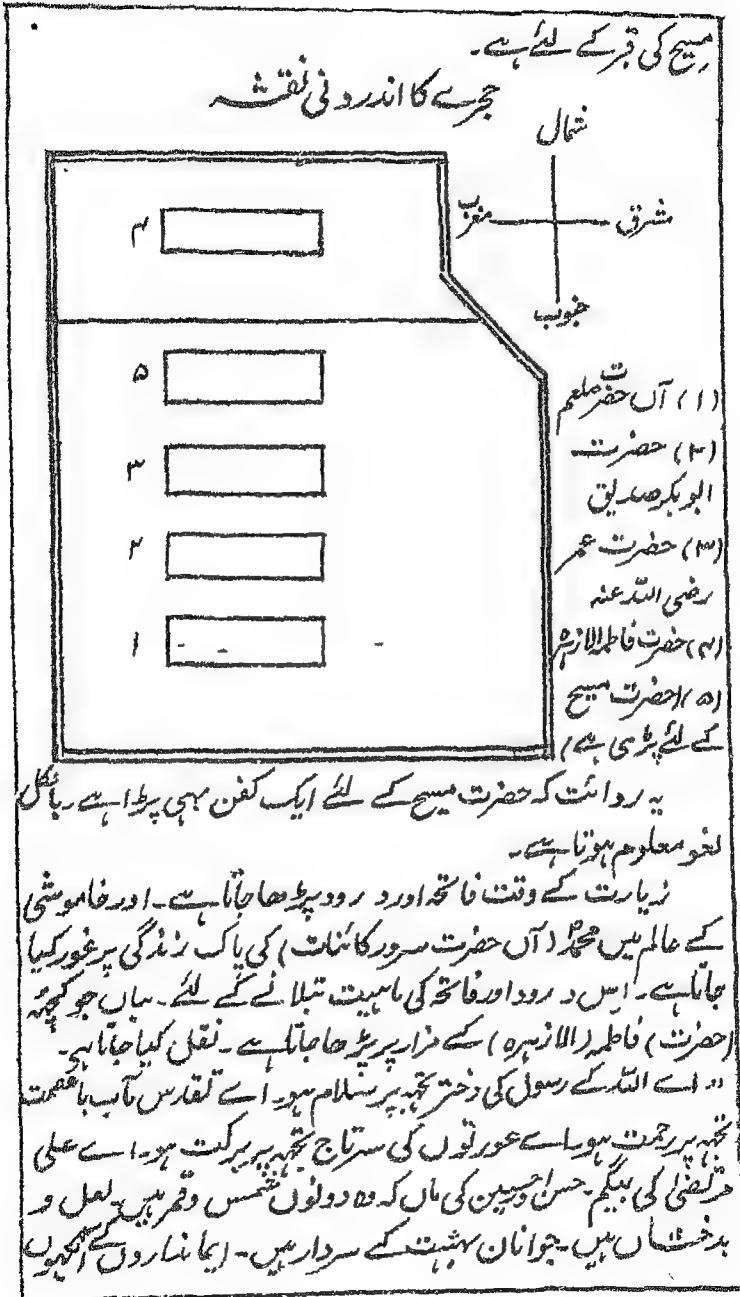 مسیح کی قبر کے لئے ہے۔
حجرے کا اندرونی نقشہ
شمال
مغرب
مشرق
جنوب
۴
۵
۳
۲
۱
(۱) آں حضرت صلعم
(۲) حضرت
ابوبکر صدیق
(۳) حضرت عمر
رضی اللہ عنہ
(۴) حضرت فاطمہ الازہرہ
(۵) (حضرت مسیح
کے لئے پڑی ہے)
یہ روائت کہ حضرت مسیح کے لئے ایک کفن بہی پڑا ہے۔ بالکل
لغو معلوم ہوتا ہے۔
زیارت کے وقت فاتحہ اور درود پڑھا جاتا ہے۔ اور خاموشی
کے عالم میں محمدؐ (آں حضرت سرور کائنات) کی پاک زندگی پر غور کیا
جاتا ہے۔ اس درود اور فاتحہ کی ماہیت تبلانے کے لئے۔ یہاں جو کچہہ
(حضرت) فاطمہ (الازہرہ) کے مزار پر پڑھا جاتا ہے۔ نقل کیا جاتا ہے۔
"اے اللہ کے رسول کی دختر تجہہ پر سلام ہو۔ اے تقدس مآب باعصمت
تجہہ پر رحمت ہو۔ اے عورتوں کی سرتاج تجہہ پر برکت ہو۔ اے علی
مرتضیٰ کی بیگم۔ حسن و حسین کی ماں کہ وہ دونوں شمس و قمر ہیں۔ لعل و
بدخشاں ہیں۔ جوانان بہشت کے سردار ہیں۔ ایمانداروں کے آنکہوں